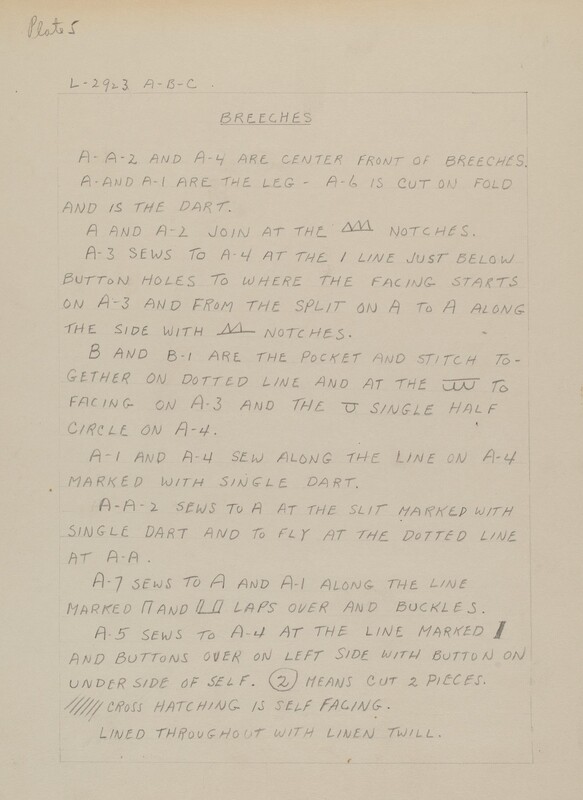 Plate 5
L-2923 A-B-C.
BREECHES
A-A-2 AND A-4 ARE CENTER FRONT OF BREECHES.
A-AND A-1 ARE THE LEG - A-6 IS CUT ON FOLD
AND IS THE DART.
A AND A-2 JOIN AT THE NOTCHES.
A-3 SEWS TO A-4 AT THE 1 LINE JUST BELOW
BUTTON HOLES TO WHERE THE FACING STARTS
ON A-3 AND FROM THE SPLIT ON A TO A ALONG
THE SIDE WITH NOTCHES.
B AND B-1 ARE THE POCKET AND STITCH TO-
GETHER ON DOTTED LINE AND AT THE TO
FACING ON A-3 AND THE SINGLE HALF
CIRCLE ON A-4.
A-1 AND A-4 SEW ALONG THE LINE ON A-4
MARKED WITH SINGLE DART.
A-A-2 SEWS TO A AT THE SLIT MARKED WITH
SINGLE DART AND TO FLY AT THE DOTTED LINE
AT A-A.
A-7 SEWS TO A AND A-1 ALONG THE LINE
MARKED AND LAPS OVER AND BUCKLES.
A-5 SEWS TO A-4 AT THE LINE MARKED
AND BUTTONS OVER ON LEFT SIDE WITH BUTTON ON
UNDER SIDE OF SELF. (2) MEANS CUT 2 PIECES.
////// CROSS HATCHING IS SELF FACING.
LINED THROUGHOUT WITH LINEN TWILL.